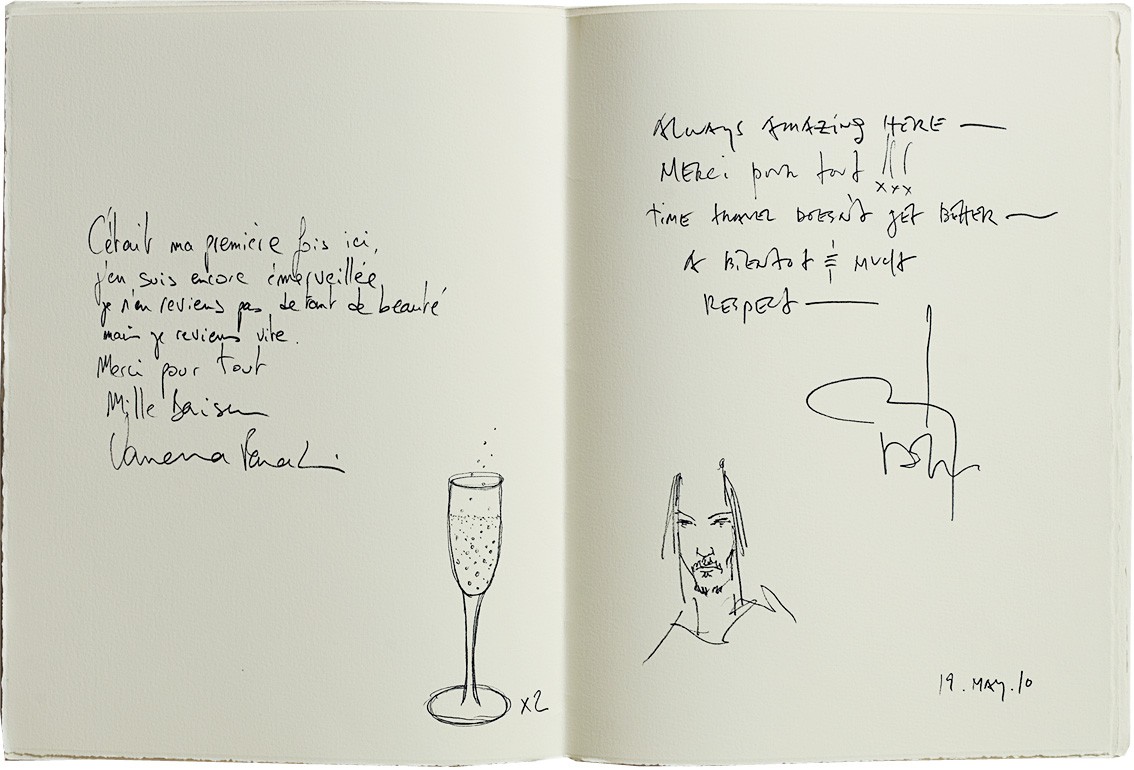 C'était ma première fois ici,
j'en suis encore émerveillée
je n'en reviens pas de tant de beauté
mais je reviens vite.
Merci pour tout
Mille Baisers
Vanessa Paradis
x2
ALWAYS AMAZING HERE —
MERCI pour tout !!!
xxx
TIME TRAVEL DOESN'T GET BETTER —
A BIENTOT & MUCH
RESPECT —
19. MAY. 10